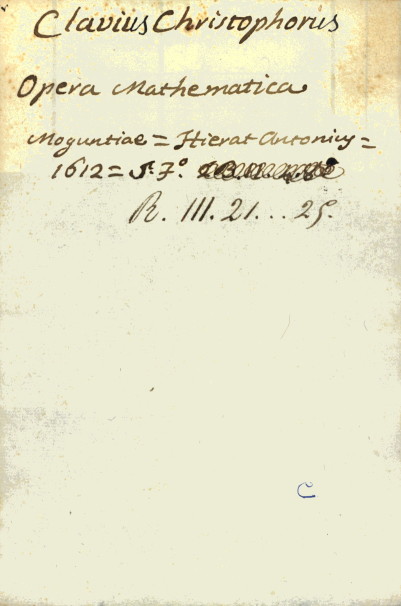 Clavius Christophorus
Opera Mathematica
Moguntiae = Hierat Antonius =
1612 = F.º
R. III. 21... 25.
C